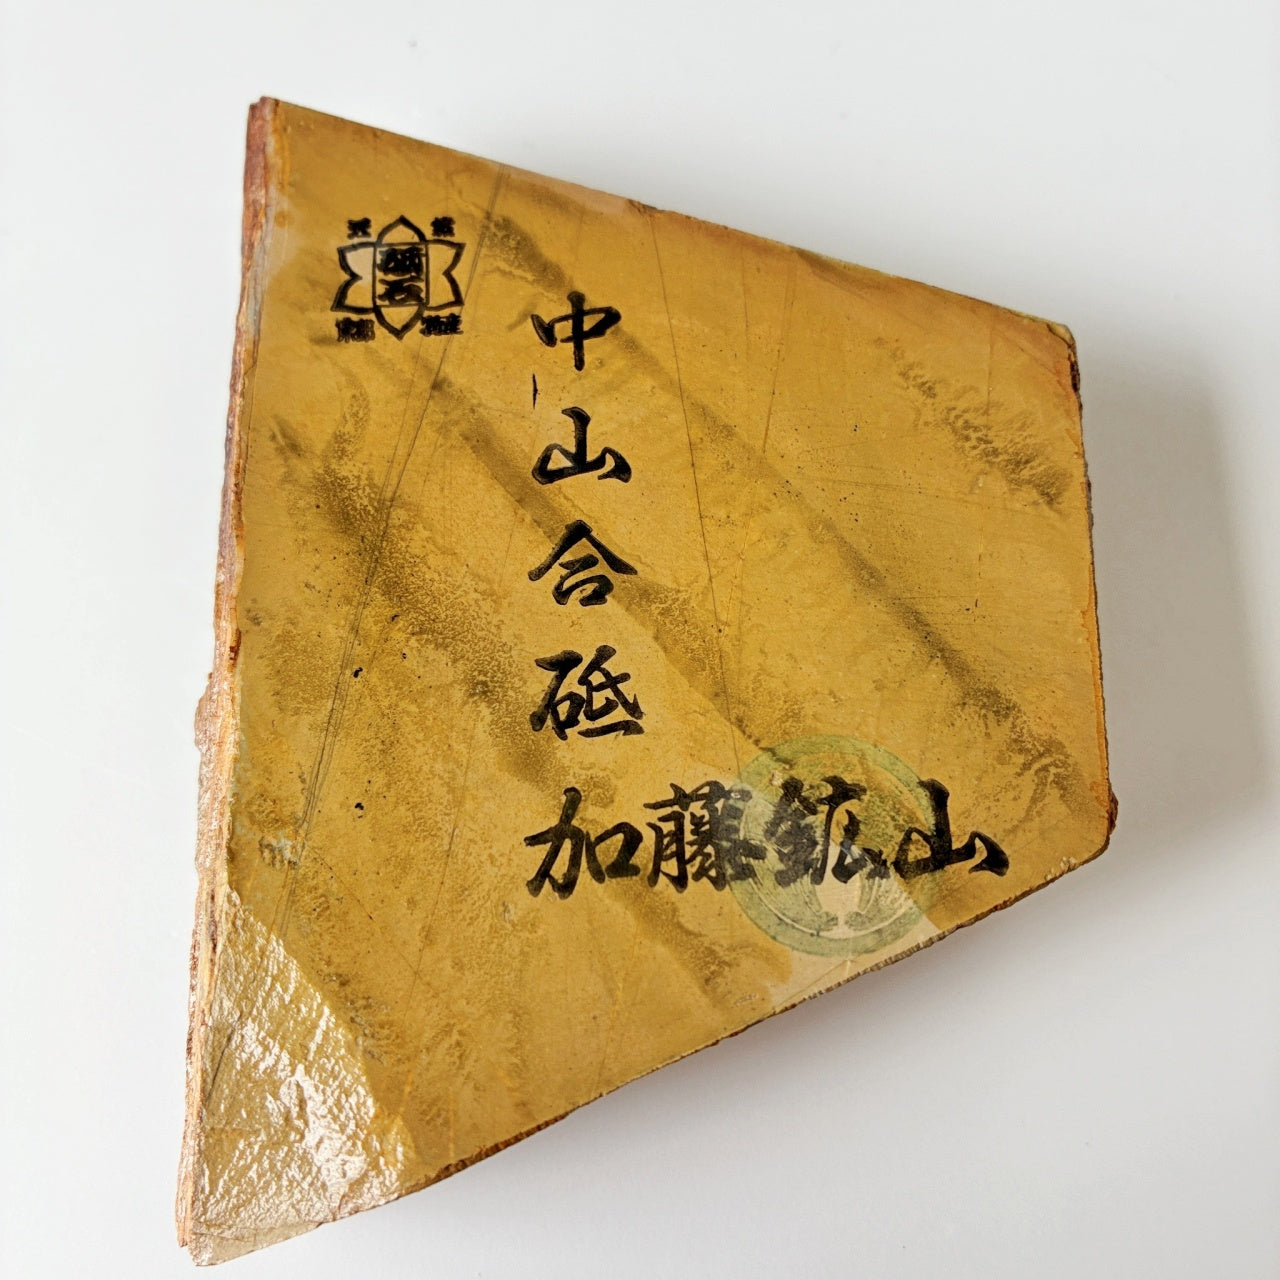 天然
砥石
京都 物産
中山合砥
加藤鉱山